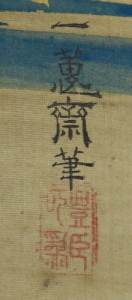 一蕙齋筆